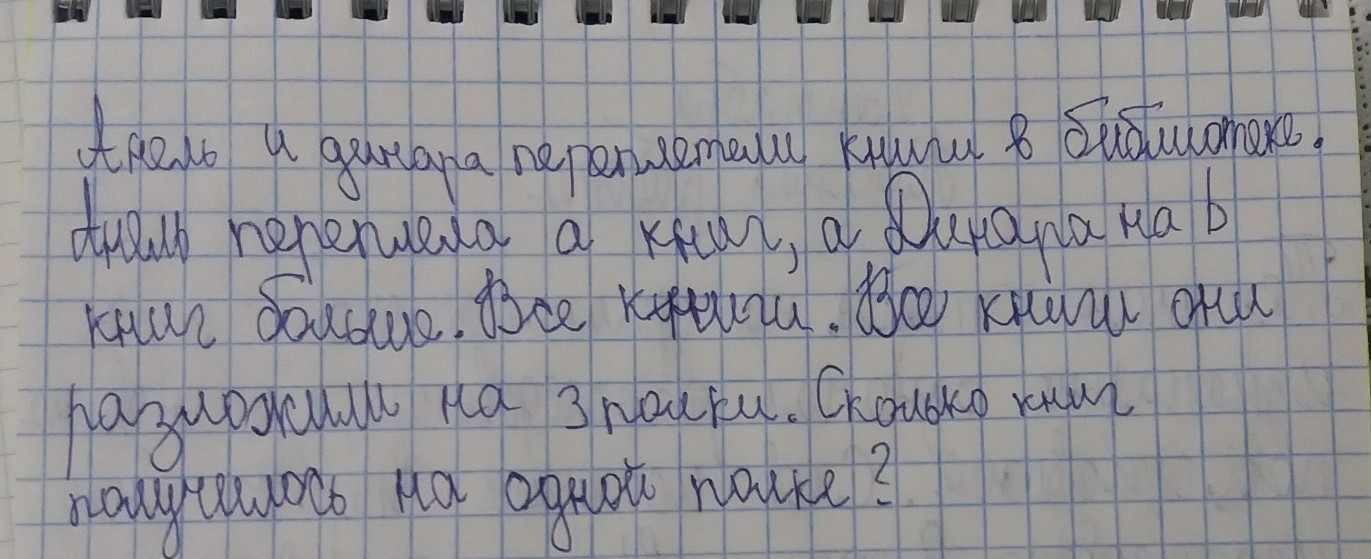 Анель и динара переплетали книги в библиотеке.
Анель переплела а книг, а Динара на b
книг больше. Все книги. Все книги они
разложили на 3 полки. Сколько книг
получилось на одной полке?